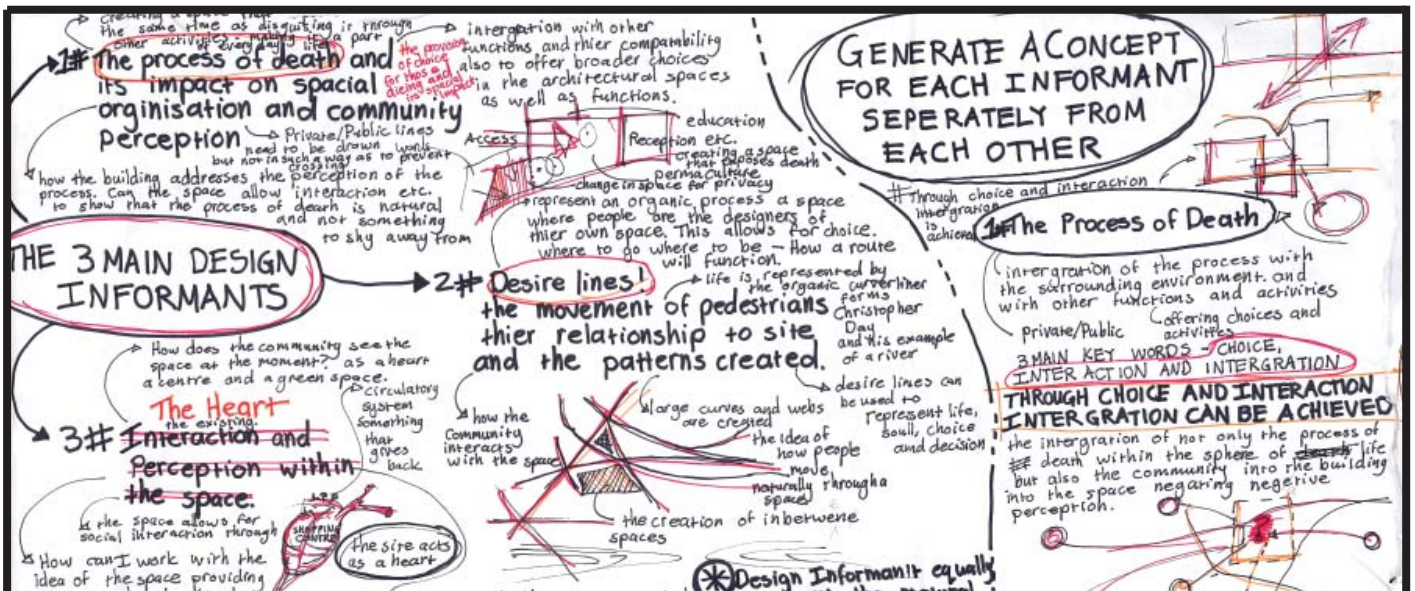 creating a space that
the same time as disguiting it through
other activities - making it a part
of every day life
1# The process of death and
its impact on spacial
orginisation and community
perception
the provision
of choice
for thos a
dieing and
its spacial
impact
Private/Public lines
need to be drawn
but not in such a way as to prevent
crossing
how the building addresses the perception of the
process. Can the space allow interaction etc.
to show that the process of death is natural
and not something
to shy away from
intergration with other
functions and thier compatability
also to offer broader choices
in the architectural spaces
as well as functions.
Access
education
Reception etc.
creating a space
that exposes death
permaculture
change in space for privacy
represent an organic process a space
where people are the designers of
thier own space. This allows for choice.
where to go where to be - How a route
will function.
THE 3 MAIN DESIGN
INFORMANTS
2# Desire lines!
the movement of pedestrians
thier relationship to site
and the patterns created.
life is represented by
the organic curverliner
forms
Christopher
Day
and his example
of a river
desire lines can
be used to
represent life,
soull, choice
and decision
how the
Community
interacts
with the space
large curves and webs
are created
the idea of
how people
move
naturally through a
space
the creation of inbetwene
spaces
How does the community see the
space at the moment? as a heart
a centre and a green space.
The Heart
the existing
3# Interaction and
Perception within
the space.
circulatory
system
something
that
gives
back
the space allows for
social interaction through
How can I work with the
idea of the space providing
SHOPPING
CENTRE
the site acts
as a heart
Design Informanit equally
GENERATE A CONCEPT
FOR EACH INFORMANT
SEPERATELY FROM
EACH OTHER
# Through choice and interaction
intergration
is
achieved
1# The Process of Death
intergration of the process with
the surrounding environment. and
with other functions and activities
offering choices and
activities
private/Public
3 MAIN KEY WORDS - CHOICE,
INTERACTION AND INTERGRATION
THROUGH CHOICE AND INTERACTION
INTERGRATION CAN BE ACHIEVED
the intergration of not only the process of
death within the sphere of death life
but also the community into the building
into the space negating negetive
perception.